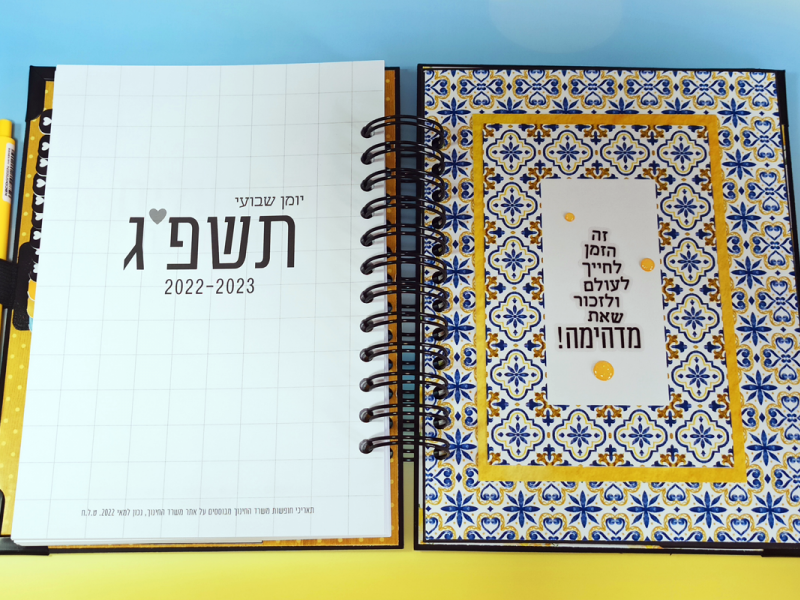 יומן שבועי
תשפ"ג
2022-2023
תאריכי חופשות משרד החינוך מבוססים על אתר משרד החינוך, נכון למאי 2022. ט.ל.ח
זה
הזמן
לחייך
לעולם
ולזכור
שאת
מדהימה!